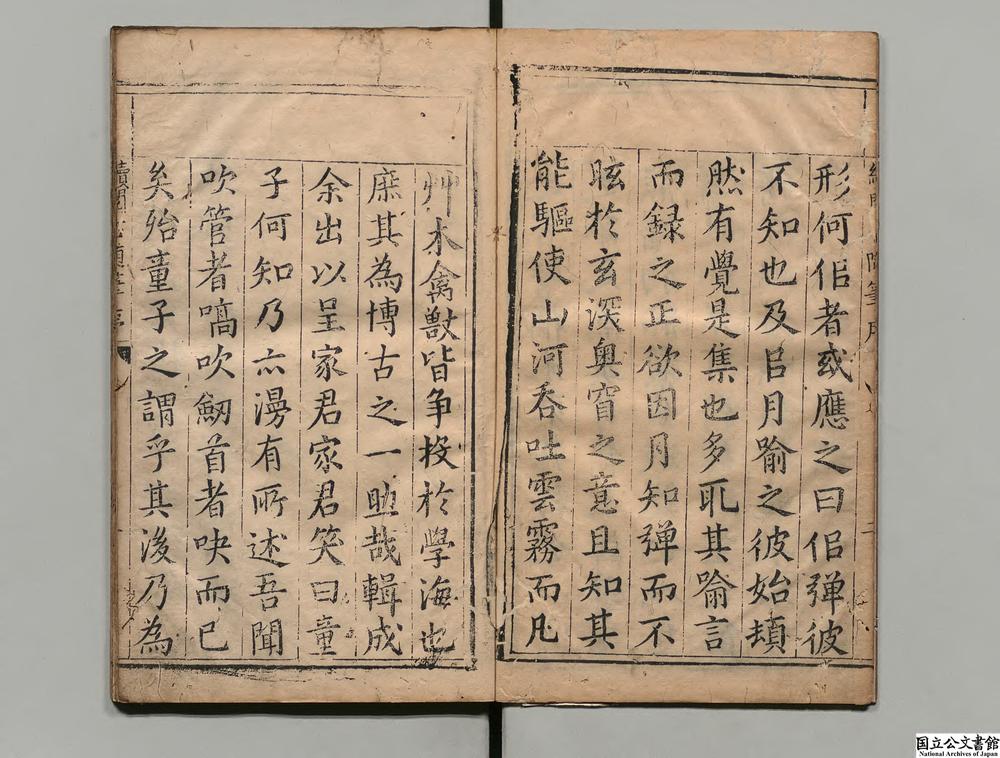 形何佀者或應之曰佀弾彼
不知也及㠯月喻之彼始頓
然有覺是集也多取其喻言
而録之正欲因月知弾而不
眩於玄深奥窅之意且知其
能驅使山河吞吐雲霧而凡
艸木禽獸皆争投於學海也
庶其為博古之一助哉輯成
余出以呈家君家君笑曰童
子何知乃亦漫有所述吾聞
吹管者嗃吹劒首者吷而已
矣殆童子之謂乎其後乃為
国立公文書館
National Archives of Japan